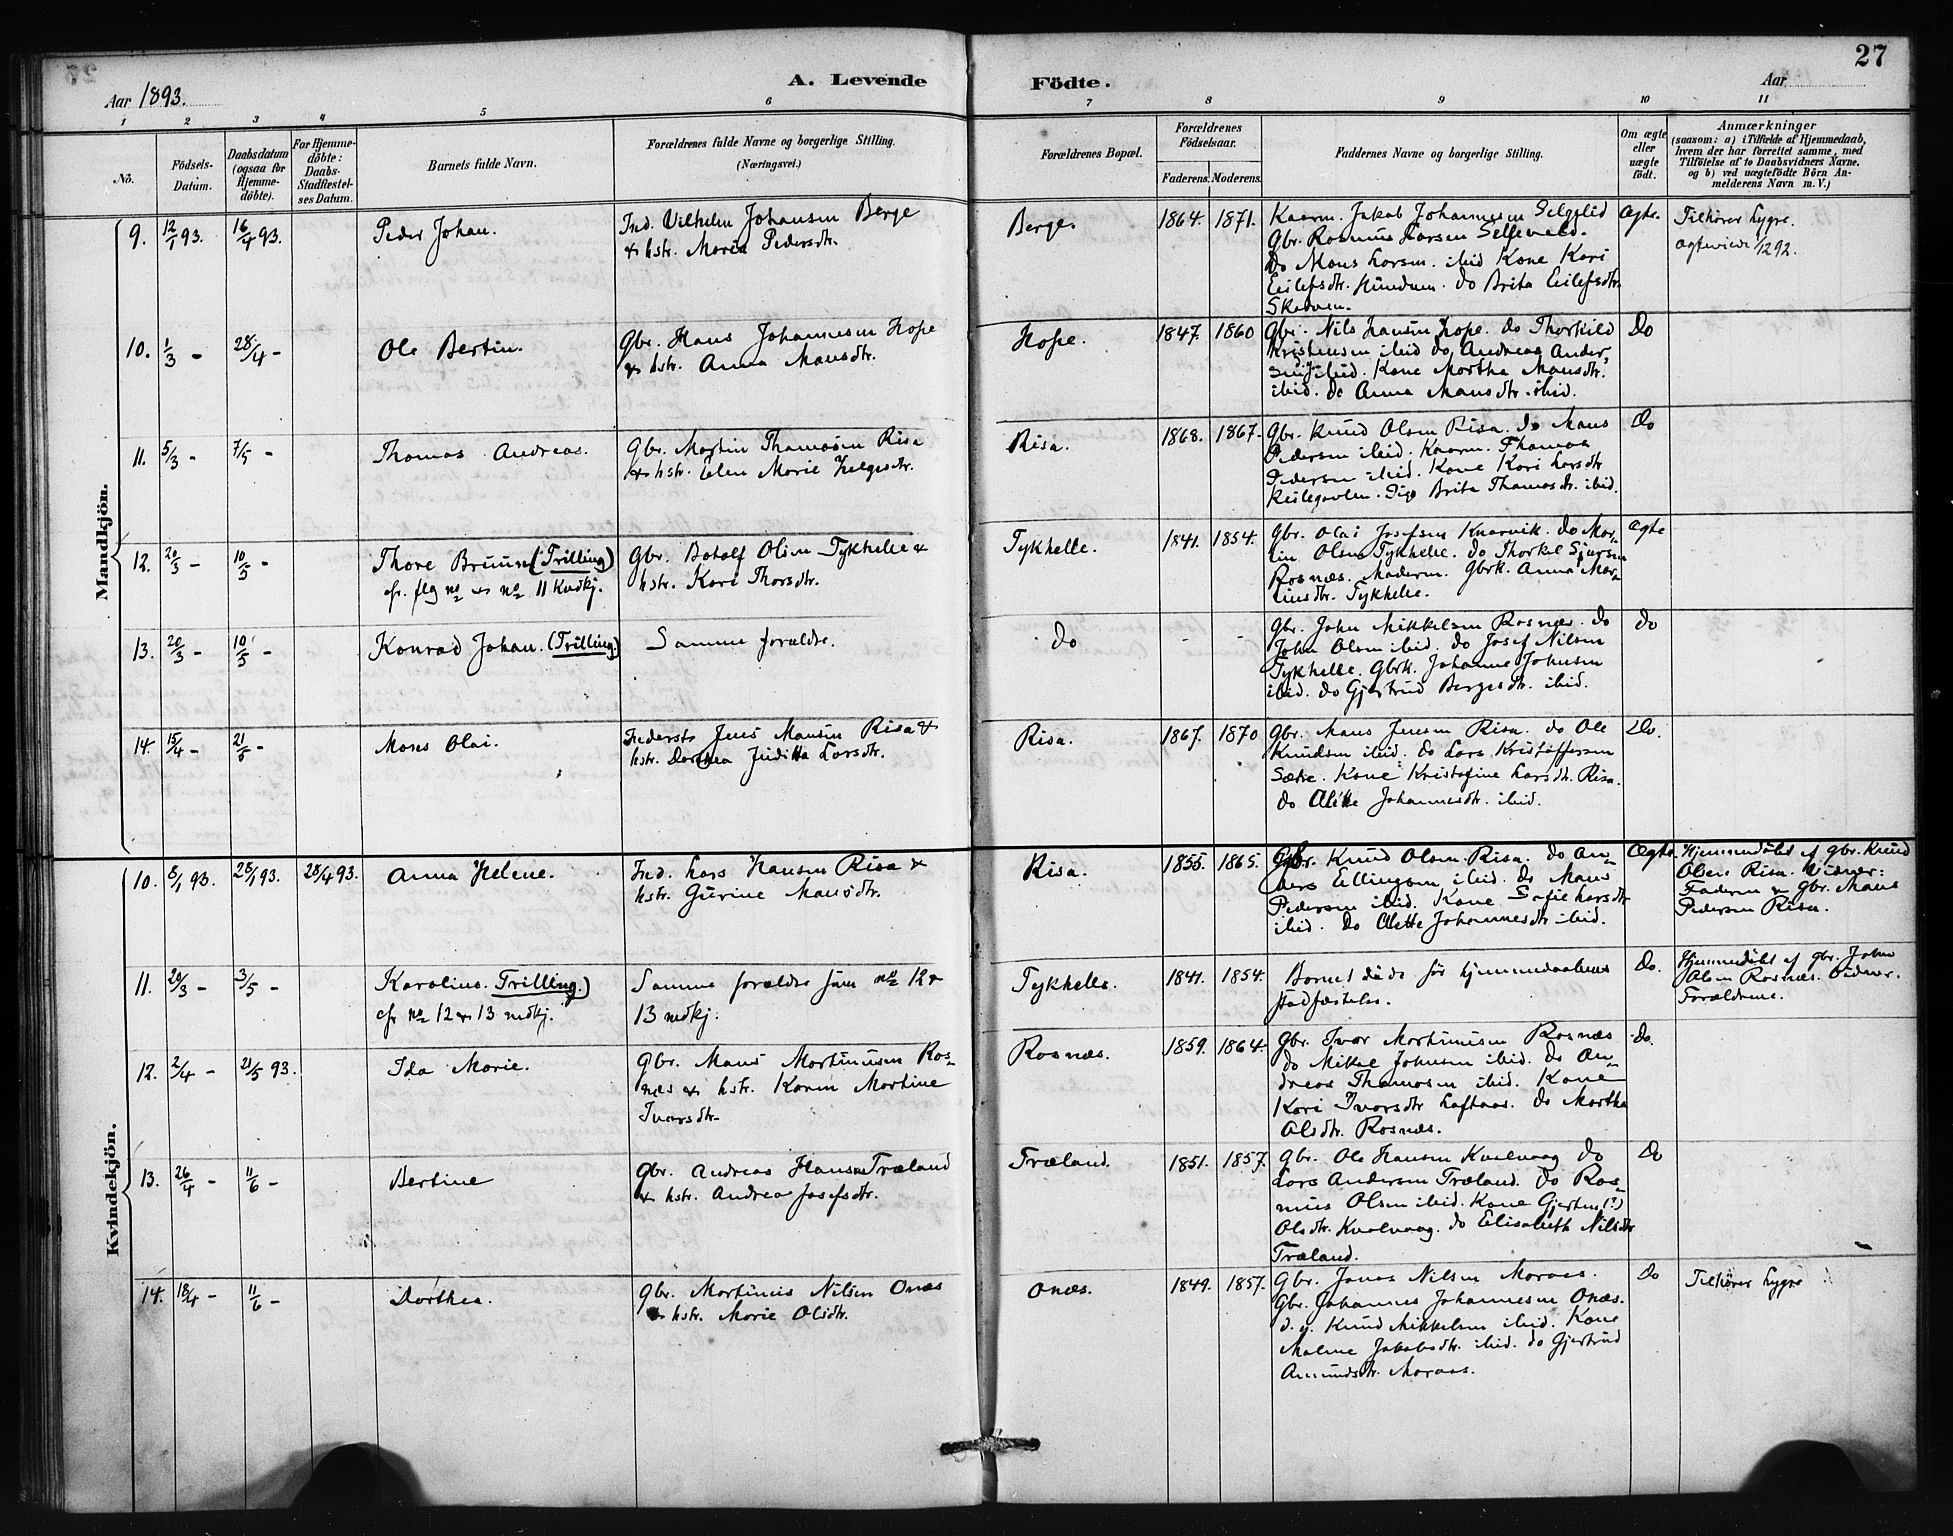 27
Aar 1893.
A. Levende Födte.
Aar
1 2 3 4 5 6 7 8 9 10 11
No.
Födsels-
Datum.
Daabsdatum
(ogsaa for
Hjemme-
döbte).
For Hjemme-
döbte:
Daabs-
Stadfæstel-
ses Datum.
Barnets fulde Navn.
Forældrenes fulde Navne og borgerlige Stilling.
(Næringsvei.)
Forældrenes Bopæl.
Forældrenes
Födselsaar.
Faderens. Moderens.
Faddernes Navne og borgerlige Stilling.
Om ægte
eller
uægte
födt.
Anmærkninger
(saasom: a) i Tilfælde af Hjemmedaab,
hvem der har forrettet samme, med
Tilföielse af to Daabsvidners Navne,
og b) ved uægtefödte Börn An-
melderens Navn m. V.)
Mandkjön.
9. 12/1 93. 16/4 93.
Peder Johan.
Ind. Vilhelm Johansen Berge
& hstr. Maria Pedersdtr.
Berge.
1864. 1871.
Kaarm. Jakob Johannesen Selgelid
Gbr. Rasmus Larsen
Do Mons Larsen. ibid Kone Kari
Eilefsdtr. do Brita Eilefsdtr.
Ægte.
Tilhører Lygre.
10. 1/3 - 28/4 -
Ole Bertin.
Gbr. Hans Johannesen Hope
& hstr. Anna Mansdtr.
Hope.
1847. 1860
Gbr. Nils Hansen Hope. do Thorkild
Kristensen ibid do Andreas Ander-
sen ibid. Kone Martha Mansdtr.
ibid. do Anna Mansdtr. ibid.
Do
11. 5/3 - 7/5 -
Thomas Andreas.
Gbr. Martin Thomasen Risa
& hstr. Elen Marie Helgesdtr.
Risa.
1868. 1867.
Gbr. Knud Olsen Risa. Do Mans
Pedersen ibid. Kaarm. Thomas
Pedersen ibid. Kone Kari Larsdtr
Pige Brita Thomasdtr. ibid.
Do
12. 20/3 - 10/5 -
Thore Bruun (Trilling)
cfr. flg no & no 11 Kvdkj.
Gbr. Botolf Olsen Tykhelle &
hstr. Kari Thorsdtr.
Tykhelle.
1841. 1854.
Gbr. Olai Josefsen Knarvik. do Mar-
tin Olsen Tykhelle. do Thorkel Sjursen
Rosnæs. Maderm. Gbrk. Anna Mar-
tinsdtr. Tykhelle.
Ægte
13. 20/3 - 10/5 -
Konrad Johan. (Trilling.)
Samme forældre.
Do
- -
Gbr. John Mikkelsen Rosnæs. do
John Olsen ibid. do Josef Nilsen
Tykhelle. Gbrk. Johanne Johnsen
ibid. do Gjertrud Bergesdtr. ibid.
do
14. 15/4 - 21/5 -
Mons Olai.
Inderst Jens Mansen Risa &
hstr. Dorthea Juditta Larsdtr.
Risa.
1867. 1870
Gbr. Mans Jensen Risa. do Ole
Knudsen ibid. do Lars Kristoffersen
Sætre. Kone Kristofine Larsdtr. Risa.
do Alette Johannesdtr. ibid.
Do.
Kvindekjön.
10. 8/1 93. 28/1 93. 28/4 93.
Anna Helene.
Ind. Lars Hansen Risa &
hstr. Gurine Mansdtr.
Risa.
1855. 1865.
Gbr. Knud Olsen Risa. do An-
ders Ellingsen ibid. do Mans
Pedersen ibid. Kone Sofie Larsdtr
ibid. do Alette Johannesdtr ibid.
Ægte.
Hjemmedøbt af gbr. Knud
Olsen Risa. Vidner:
Faderen & gbr. Mans
Pedersen Risa.
11. 20/3 - 3/5 -
Karoline. Trilling.)
cfr no 12 & 13 mdkj.
Samme forældre som no 12 &
13 mdkj.
Tykhelle.
1841. 1854.
Barnet døde før hjemmedaabens
stadfæstelse.
Do.
Hjemmedøbt af gbr. John
Olsen Rosnæs. Vidner.
Forældrene.
12. 2/4 - 21/5 93.
Ida Marie.
Gbr. Mans Martinusen Ros-
næs & hstr. Karen Martine
Iversdtr.
Rosnæs.
1859. 1864.
Gbr. Ivar Martinusen Rosnæs
do Mikkel Johnsen ibid. do An-
dreas Thomasen ibid. Kone
Kari Ivarsdtr Loftaas. do Martha
Olsdtr. Rosnæs.
Do.
13. 26/4 - 11/6 -
Bertine
Gbr. Andreas Hansen Træland
& hstr. Andrea Josefsdtr.
Træland.
1851. 1857.
Gbr. Ole Hansen Kvalvaag do
Lars Andersen Træland. do Ras-
mus Olsen ibid. Kone Gjertru(?)
Olsdtr. Kvalvaag. do Elisabeth Nilsdtr
Træland.
Do
14. 18/4 - 11/6 -
Dorthea.
Gbr. Martinus Nilsen Onæs
& hstr. Marie Olsdtr.
Onæs.
1849. 1857.
Gbr. Jonas Nilsen Moraas.
Gbr. Johannes Johannesen Onæs.
Knud Mikkelsen ibid. Kone
Malene Jakobsdtr. ibid. do Gjertrud
Amundsdtr. Moraas.
Do
Tilhører Lygre